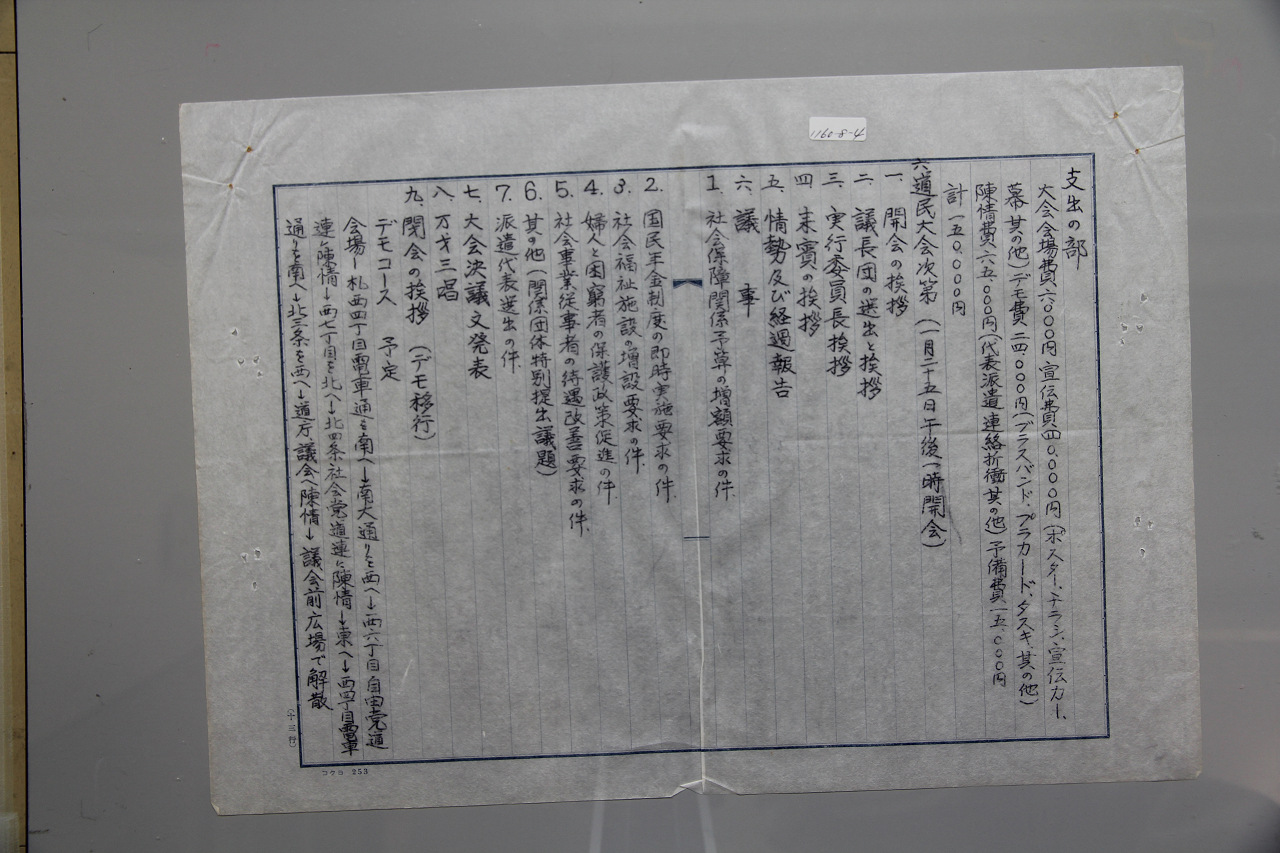 1160-8-4
支出の部
大会会場費六.〇〇〇円 宣伝費四〇.〇〇〇円(ポスター、チラシ、宣伝カー、
幕其の他)デモ費二四.〇〇〇円(ブラスバンド、プラカード、タスキ、其の他)
陳情費六五.〇〇〇円(代表派遣連絡折衝其の他)予備費一五.〇〇〇円
計一五〇.〇〇〇円
六道民大会次第 (一月二十五日午後一時開会)
一、開会の挨拶
二、議長団の選出と挨拶
三、実行委員長挨拶
四、来賓の挨拶
五、情勢及び経過報告
六、議 事
1. 社会保障関係予算の増額要求の件.
2. 国民年金制度の即時実施要求の件.
3. 社会福祉施設の増設要求の件.
4. 婦人と困窮者の保護政策促進の件.
5. 社会事業従事者の待遇改善要求の件.
6. 其の他(関係団体特別提出議題)
7. 派遣代表選出の件.
七、大会決議文発表
八、万才三唱
九、閉会の挨拶 (デモ移行)
デモコース 予定
会場―札西四丁目電車通を南へ→南大通りを西へ→西六丁目自由党道
連に陳情→西七丁目を北へ→北四条社会党道連に陳情→東へ→西四丁目電車
通りを南へ→北三条を西へ→道庁議会へ陳情→議会前広場で解散
(十三行)
コクヨ 253